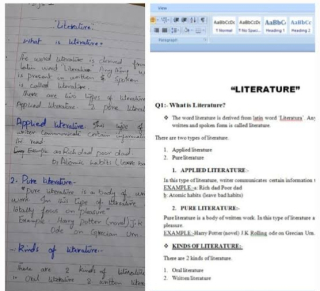 Literature
What is literature:-
The word literature is derived from
latin word 'Literature. Anything
is present in written & spoken
is called literature.
There are two types of literature
Applied literature & pure literature
Applied literature:- This type of
writer communicate certain information
for need
Example:- Rich dad poor dad
b) Atomic habits (leave
2- Pure literature-
"Pure literature is a body of
work. In this type of literature a
totally focus on pleasure"
Example: Harry Potter (novel) J.K
Ode on Grecian Urn
- Kinds of literature:-
There are 2 kinds of literature
Oral literature & written
View
AaBbCcDc AaBbCcDc AaBbC AaBbCc
¶ Normal ¶ No Spaci... Heading 1 Heading 2
Paragraph
"LITERATURE"
Q1:- What is Literature?
❖ The word literature is derived from latin word 'Literature'. Any
written and spoken form is called literature.
There are two types of literature.
1. Applied literature
2. Pure literature
1. APPLIED LITERATURE:-
In this type of literature, writer communicates certain information
EXAMPLE:-a. Rich dad Poor dad
b. Atomic Habits (leave bad habits)
2. PURE LITERATURE:-
Pure literature is a body of written work. In this type of literature a
pleasure.
EXAMPLE:-Harry Potter (novel) J.K Rolling ode on Grecian Urn.
❖ KINDS OF LITERATURE:-
There are 2 kinds of literature.
1. Oral literature
2. Written literature